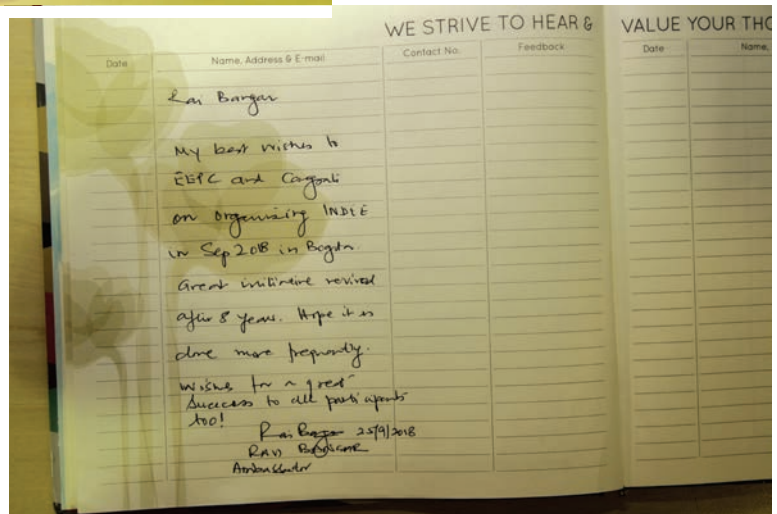 WE STRIVE TO HEAR & VALUE YOUR THO
Date Name, Address & E-mail Contact No. Feedback Date Name,
Rai Bangar
My best wishes to
EEPC and Congrats
on organising INDEE
in Sep 2018 in Bogota.
Great initiative revived
after 8 years. Hope it is
done more frequently.
Wishes for a great
success to all participants
too!
25/9/2018
RAVI BANGAR
Ambassador